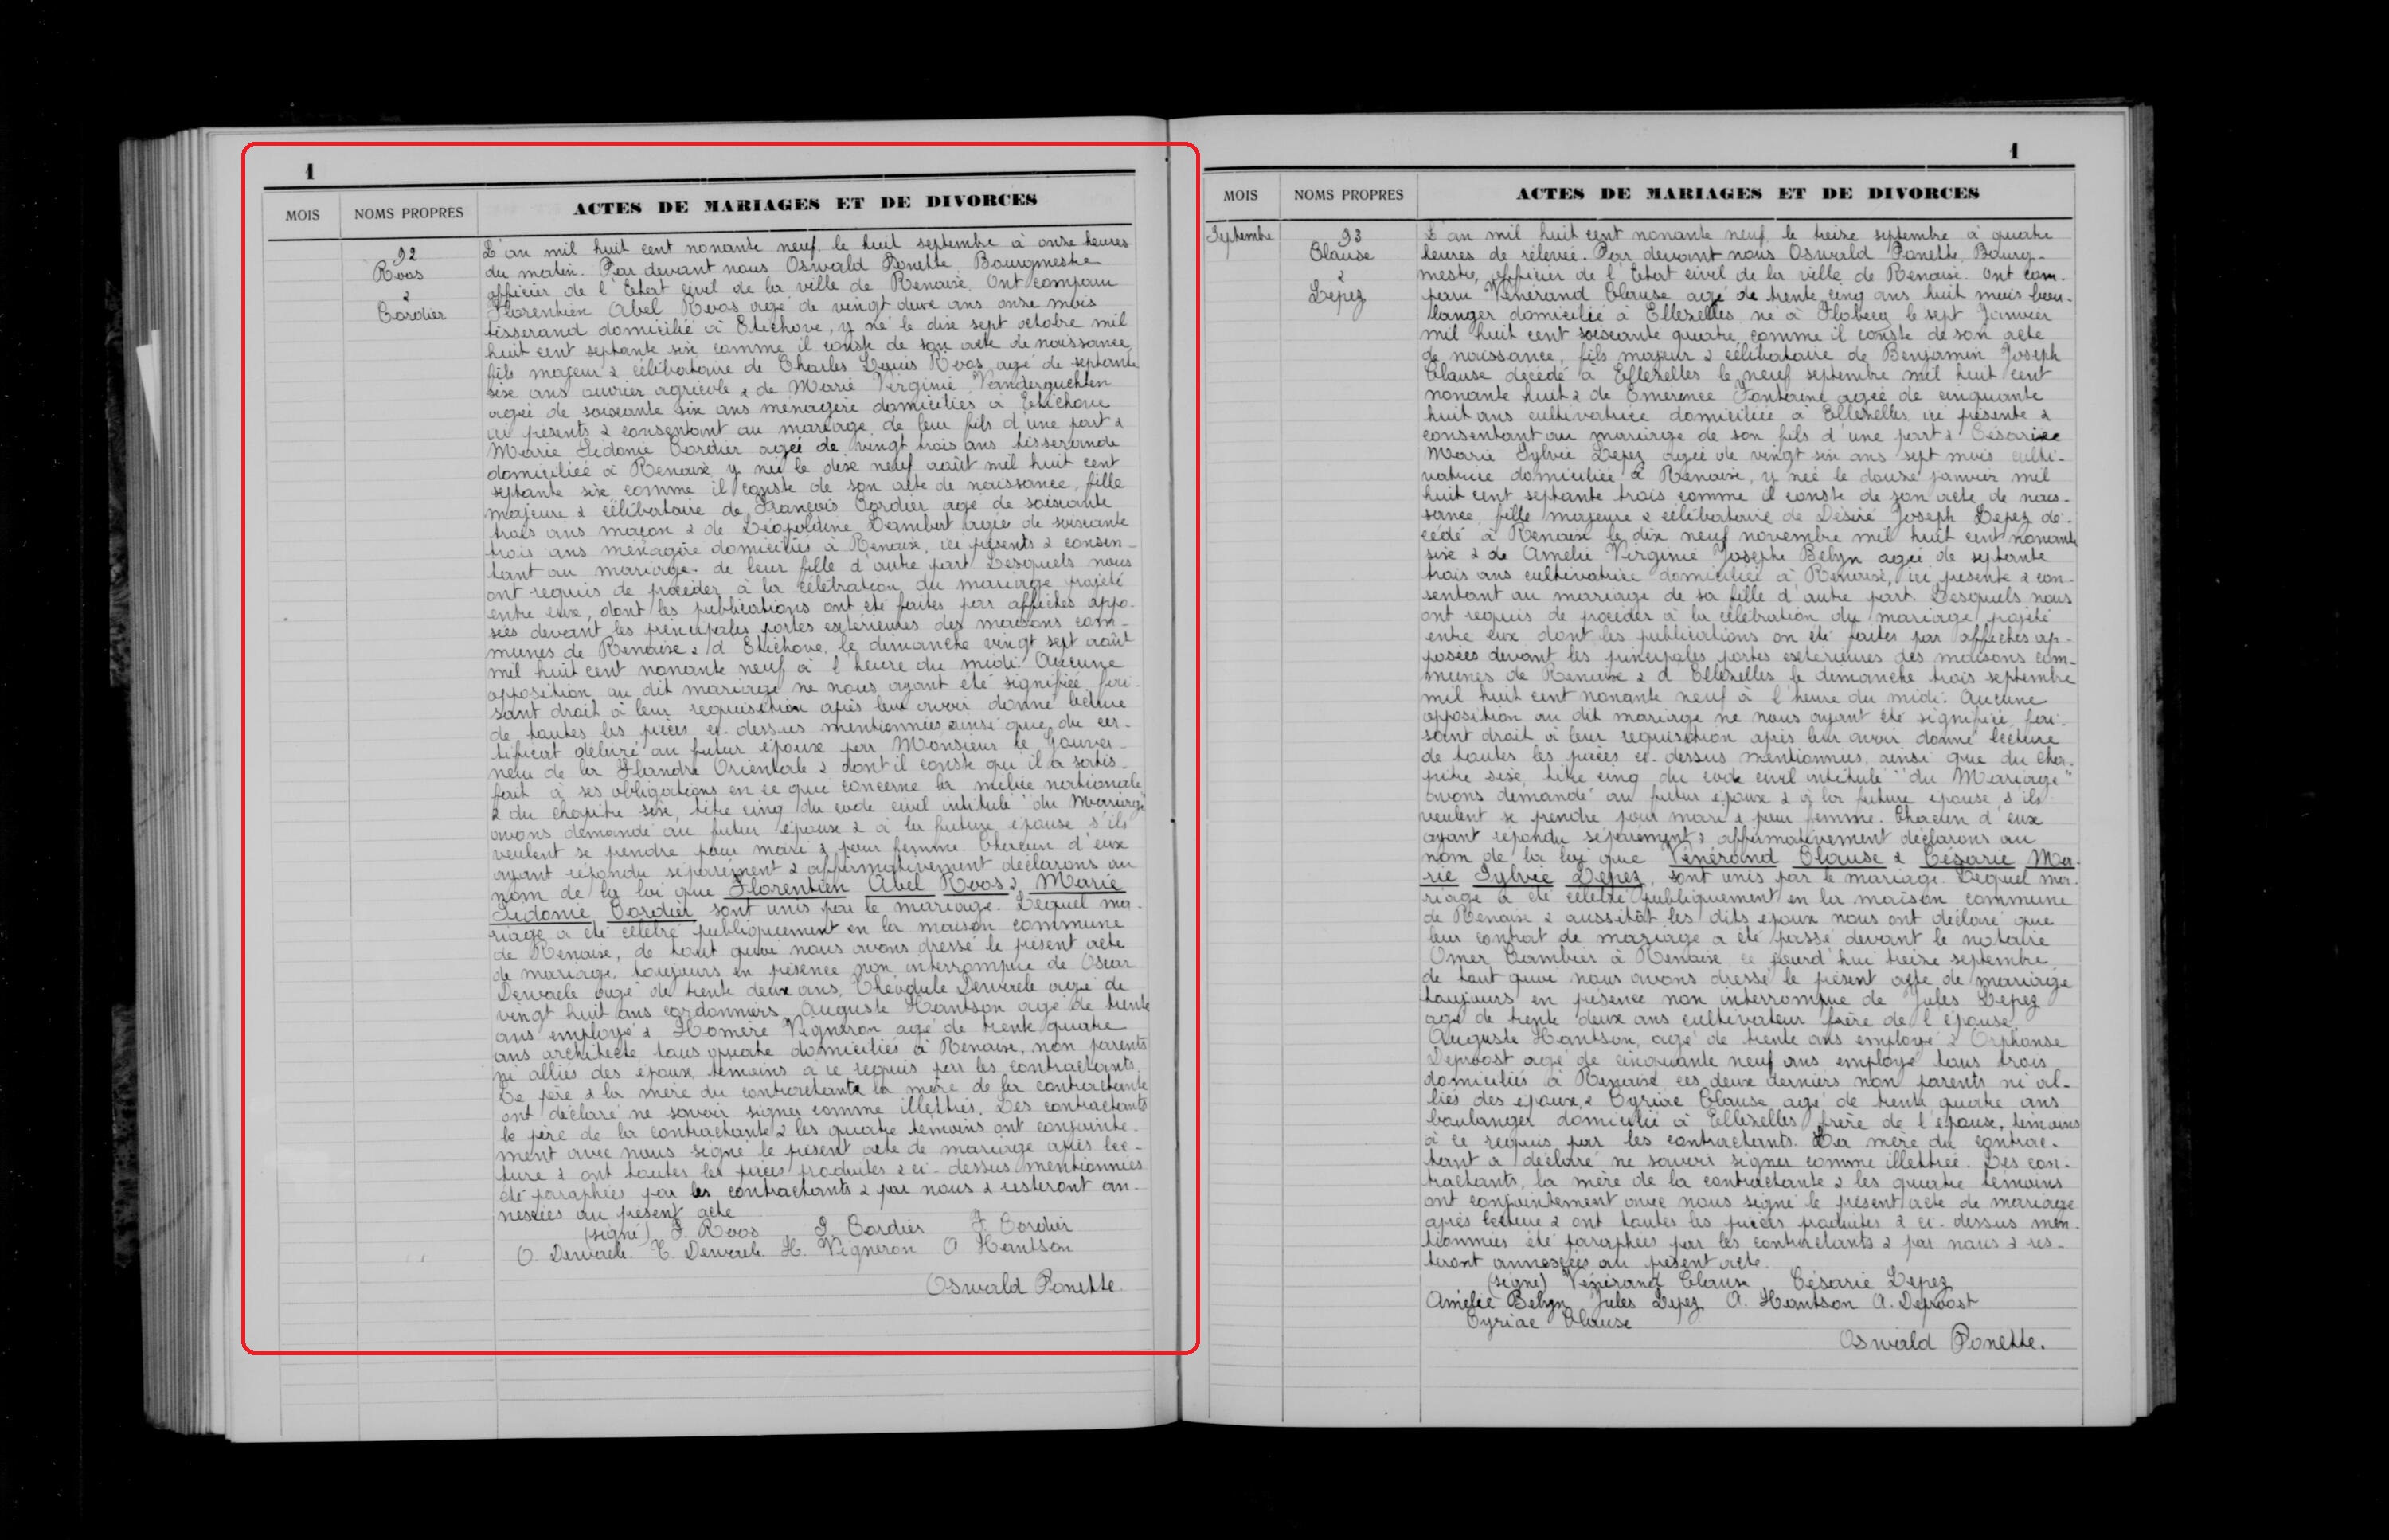 1
MOIS NOMS PROPRES ACTES DE MARIAGES ET DE DIVORCES
92
Roos
&
Cordier
L'an mil huit cent nonante neuf le huit septembre à onze heures
du matin. Par devant nous Oswald Ponette Bourgmestre
officier de l'Etat civil de la ville de Renaix. Ont comparu
Florentien Abel Roos agé de vingt deux ans onze mois
tisserand domicilié à Etichove, y né le dix sept octobre mil
huit cent septante six comme il conste de son acte de naissance
fils majeur & célibataire de Charles Louis Roos agé de septante
six ans ouvrier agricole & de Marie Virginie Vanderguchten
agée de soixante six ans ménagère domiciliés à Etichove
ici présents & consentant au mariage de leur fils d'une part &
Marie Sidonie Cordier agée de vingt trois ans tisserande
domiciliée à Renaix y née le dix neuf août mil huit cent
septante six comme il conste de son acte de naissance, fille
majeure & célibataire de François Cordier agé de soixante
trois ans maçon & de Léopoldine Lambert agée de soixante
trois ans ménagère domiciliés à Renaix, ici présents & consen-
tant au mariage de leur fille d'autre part Lesquels nous
ont requis de procéder à la célébration du mariage projeté
entre eux, dont les publications ont été faites par affiches appo-
sées devant les principales portes extérieures des maisons com-
munes de Renaix & d'Etichove, le dimanche vingt sept août
mil huit cent nonante neuf à l'heure du midi. Aucune
opposition au dit mariage ne nous ayant été signifiée, fai-
sant droit à leur requisition après leur avoir donné lecture
de toutes les pièces ci-dessus mentionnées ainsi que du cer-
tificat délivré au futur époux par Monsieur le Gouver-
neur de la Flandre Orientale & dont il conste qu'il a satis-
fait à ses obligations en ce qui concerne la milice nationale
& du chapitre six, titre cinq du code civil intitulé "du Mariage"
avons demandé au futur époux & à la future épouse s'ils
veulent se prendre pour mari & pour femme. Chacun d'eux
ayant répondu séparément & affirmativement déclarons au
nom de la loi que Florentien Abel Roos & Marie
Sidonie Cordier sont unis par le mariage. Lequel ma-
riage a été célébré publiquement en la maison commune
de Renaix, de tout quoi nous avons dressé le présent acte
de mariage, toujours en présence non interrompue de Oscar
Dervaele agé de trente deux ans, Théodule Dervaele agé de
vingt huit ans cordonniers, Auguste Hantson agé de trente
ans employé & Homère Vigneron agé de trente quatre
ans architecte tous quatre domiciliés à Renaix, non parents
ni alliés des époux, témoins à ce requis par les contractants
Le père & la mère du contractante la mère de la contractante
ont déclaré ne savoir signer comme illettrés. Les contractants
le père de la contractante & les quatre témoins ont conjointe-
ment avec nous signé le présent acte de mariage après lec-
ture & ont toutes les pièces produites & ci-dessus mentionnées
été paraphées par les contractants & par nous & resteront an-
nexées au présent acte
(signé) F. Roos S. Cordier F. Cordier
O. Dervaele. T. Dervaele H. Vigneron A Hantson
Oswald Ponette.
1
MOIS NOMS PROPRES ACTES DE MARIAGES ET DE DIVORCES
Septembre
93
Clause
&
Depez
L'an mil huit cent nonante neuf le treize septembre à quatre
heures de relevée. Par devant nous Oswald Ponette, Bourg-
mestre, officier de l'Etat civil de la ville de Renaix. Ont com-
paru Vénérand Clause agé de trente cinq ans huit mois bou-
langer domicilié à Ellezelles né à Flobecq le sept Janvier
mil huit cent soixante quatre, comme il conste de son acte
de naissance, fils majeur & célibataire de Benjamin Joseph
Clause décédé à Ellezelles le neuf septembre mil huit cent
nonante huit & de Emerence Fontaine agée de cinquante
huit ans cultivatrice domiciliée à Ellezelles ici présente &
consentant au mariage de son fils d'une part & Césarie
Marie Sylvie Depez agée de vingt six ans sept mois culti-
vatrice domiciliée à Renaix, y née le douze janvier mil
huit cent septante trois comme il conste de son acte de nais-
sance, fille majeure & célibataire de Désiré Joseph Depez dé-
cédé à Renaix le dix neuf novembre mil huit cent nonante
six & de Amélie Virginie Josephe Belyn agée de septante
trois ans cultivatrice domiciliée à Renaix, ici présente & con-
sentant au mariage de sa fille d'autre part. Lesquels nous
ont requis de procéder à la célébration du mariage projeté
entre eux dont les publications on été faites par affiches ap-
posées devant les principales portes extérieures des maisons com-
munes de Renaix & d'Ellezelles le dimanche trois septembre
mil huit cent nonante neuf à l'heure du midi. Aucune
opposition au dit mariage ne nous ayant été signifiée, fai-
sant droit à leur requisition après leur avoir donné lecture
de toutes les pièces ci-dessus mentionnées, ainsi que du cha-
pitre six, titre cinq du code civil intitulé "du Mariage"
avons demandé au futur époux & à la future épouse s'ils
veulent se prendre pour mari & pour femme. Chacun d'eux
ayant répondu séparément & affirmativement déclarons au
nom de la loi que Vénérand Clause & Césarie Ma-
rie Sylvie Depez, sont unis par le mariage. Lequel ma-
riage a été célébré publiquement en la maison commune
de Renaix & aussitôt les dits époux nous ont déclaré que
leur contrat de mariage a été passé devant le notaire
Omer Cambier à Renaix ce jourd'hui treize septembre
de tout quoi nous avons dressé le présent acte de mariage
toujours en présence non interrompue de Jules Depez
agé de trente deux ans cultivateur frère de l'épouse,
Auguste Hantson, agé de trente ans employé & Orphonse
Deproost agé de cinquante neuf ans employé tous trois
domiciliés à Renaix ces deux derniers non parents ni al-
liés des époux, & Cyriac Clause agé de trente quatre ans
boulanger domicilié à Ellezelles frère de l'épouse, témoins
à ce requis par les contractants. La mère du contrac-
tant a déclaré ne savoir signer comme illettrée. Les con-
tractants, la mère de la contractante & les quatre témoins
ont conjointement avec nous signé le présent acte de mariage
après lecture & ont toutes les pièces produites & ci-dessus men-
tionnées été paraphées par les contractants & par nous & res-
teront annexées au présent acte.
(signé) Vénérand Clause Césarie Depez
Amélie Belyn Jules Depez A. Hantson A. Deproost
Cyriac Clause
Oswald Ponette.